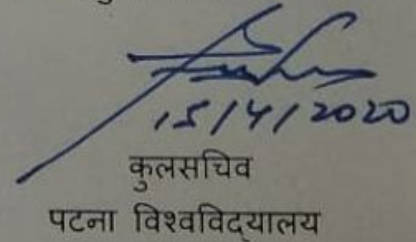 15/4/2020
कुलसचिव
पटना विश्वविद्यालय